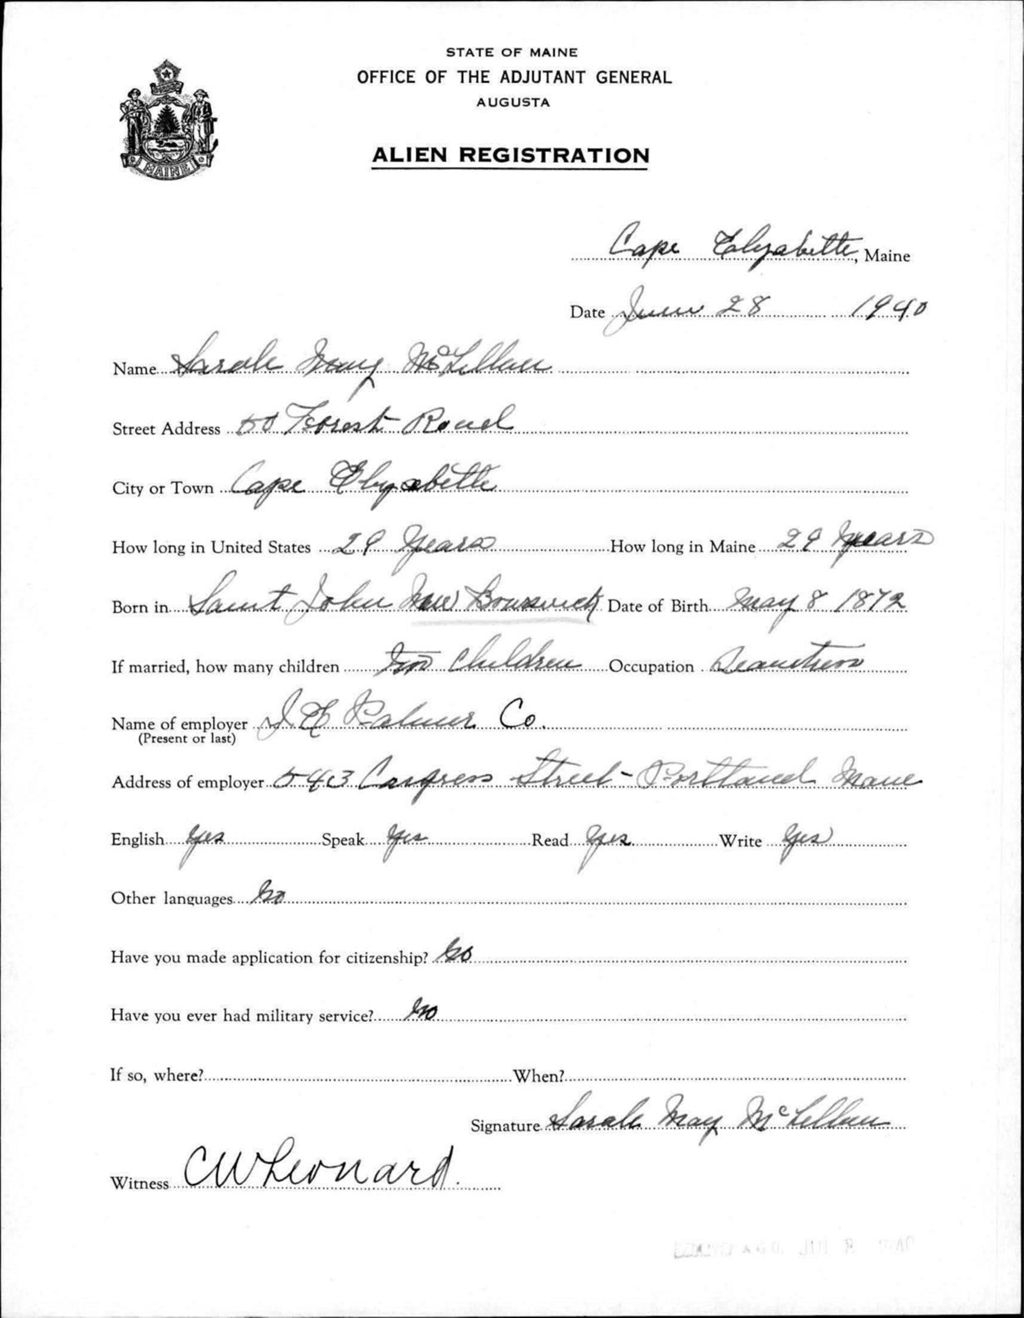 STATE OF MAINE
OFFICE OF THE ADJUTANT GENERAL
AUGUSTA
ALIEN REGISTRATION
MAINE
Cape Elizabeth, Maine
Date June 28 1940
Name Sarah May McLellan
Street Address 50 Forest Road
City or Town Cape Elizabeth
How long in United States 29 Years How long in Maine 29 Years
Born in Saint John New Brunswick Date of Birth May 8 1872
If married, how many children two Children Occupation Seamstress
Name of employer J E Palmer Co.
(Present or last)
Address of employer 543 Congress Street - Portland Maine
English Yes Speak Yes Read Yes Write Yes
Other languages No
Have you made application for citizenship? No
Have you ever had military service? No
If so, where? When?
Signature Sarah May McLellan
Witness C W Leonard.